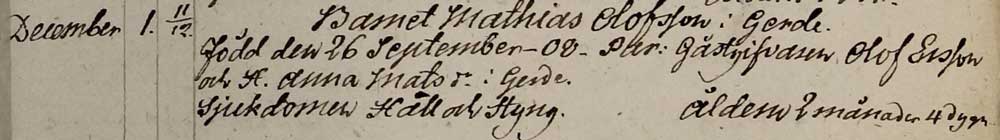 December 1. 11/12. Barnet Mathias Olofsson i Gerde.
Född den 26 September -08. Par: Gästgifvaren Olof Ersson
och H. Anna Mats dr. i Gerde.
Sjukdomen Håll och Styng. Åldern 2 månader 4 dygn